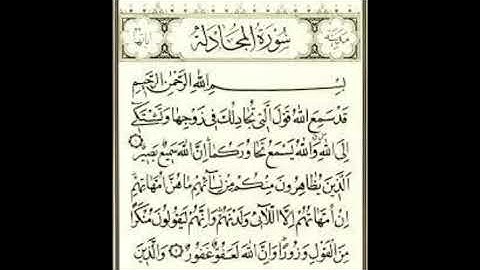 سورة المجادلة
بسم الله الرحمن الرحيم
قد سمع الله قول التي تجادلك في زوجها وتشتكي
إلى الله والله يسمع تحاوركما إن الله سميع بصير ١
الذين يظاهرون منكم من نسائهم ما هن أمهاتهم
إن أمهاتهم إلا اللائي ولدنهم وإنهم ليقولون منكرا
من القول وزورا وإن الله لعفو غفور ٢ والذين